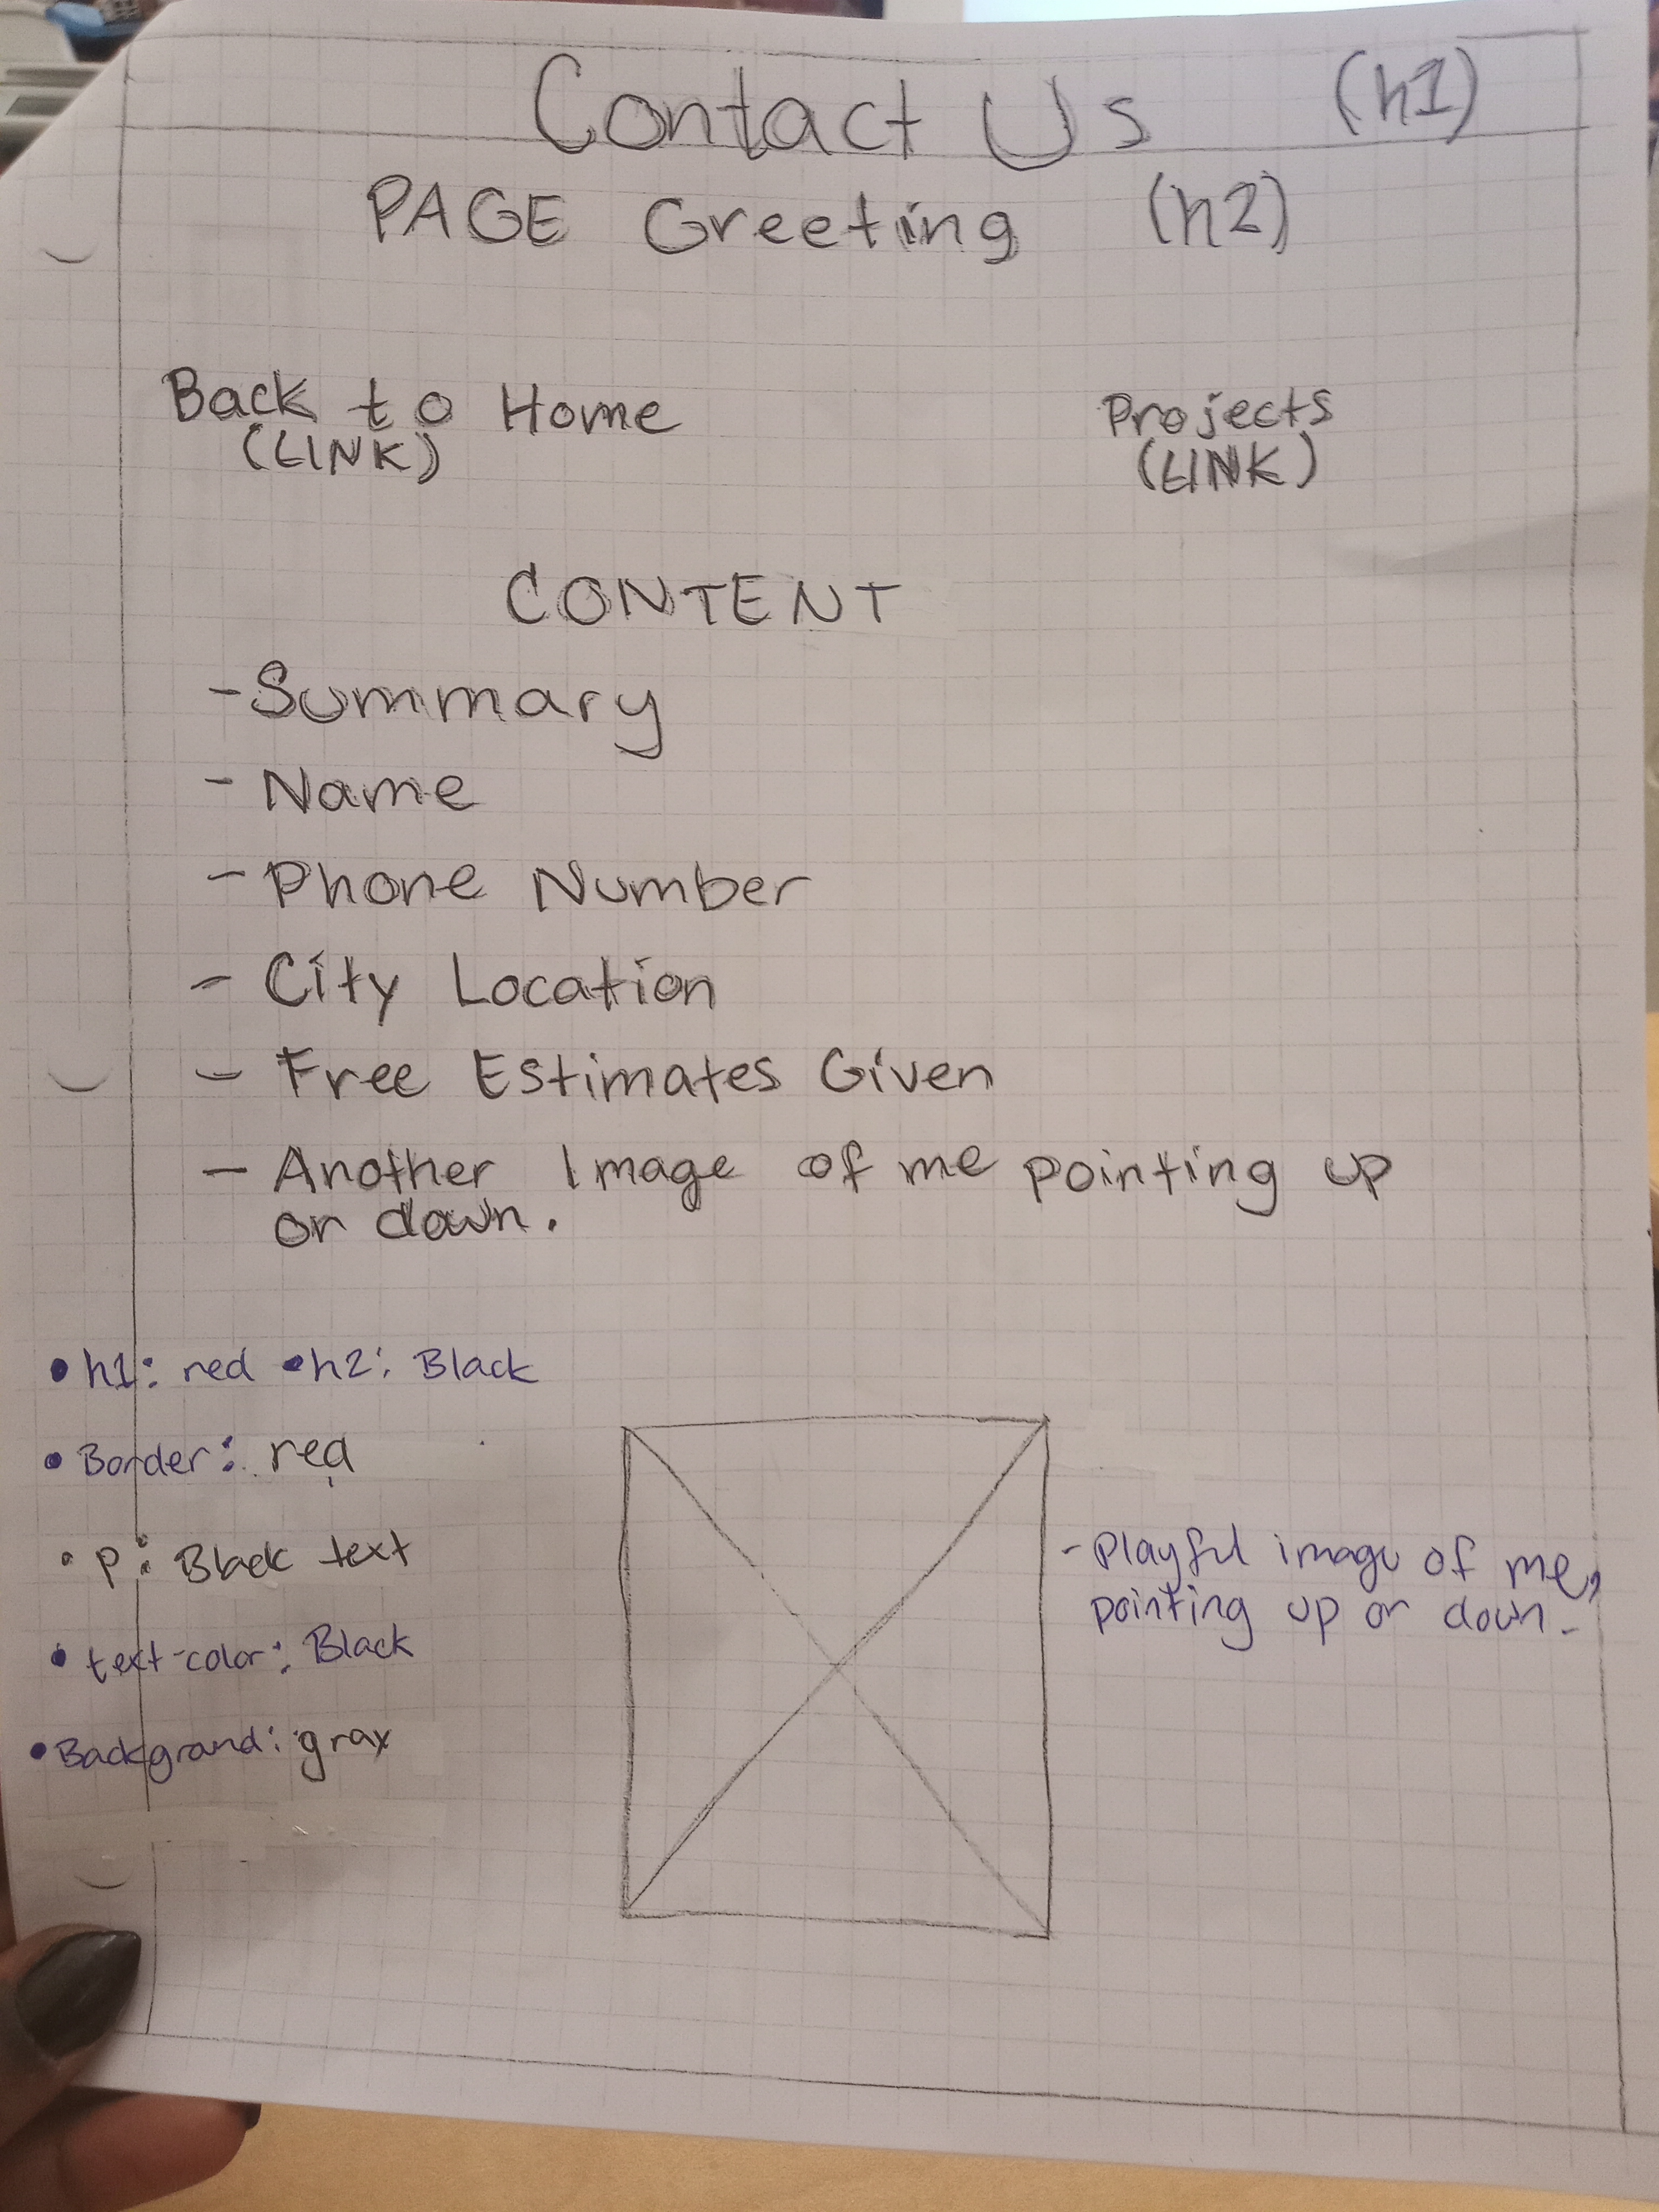 Contact Us (h1)
PAGE Greeting (h2)
Back to Home
(LINK)
Projects
(LINK)
CONTENT
- Summary
- Name
- Phone Number
- City Location
- Free Estimates Given
- Another Image of me pointing up
or down.
• h1: red • h2: Black
• Border: red
• p: Black text
• text-color: Black
• Background: gray
- Playful image of me,
pointing up or down.